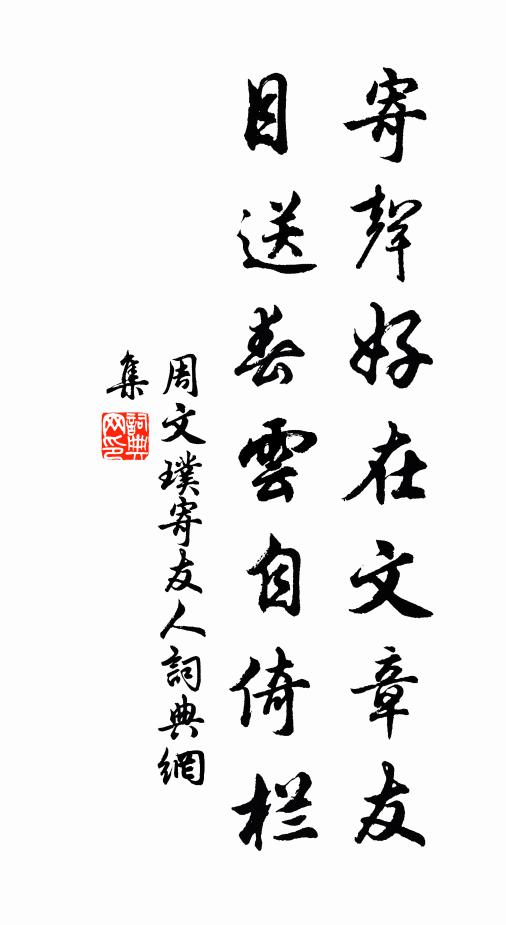 寄聲好在文章友
目送春雲自倚栏
周文璞寄友人詞典網
集
詞典网印